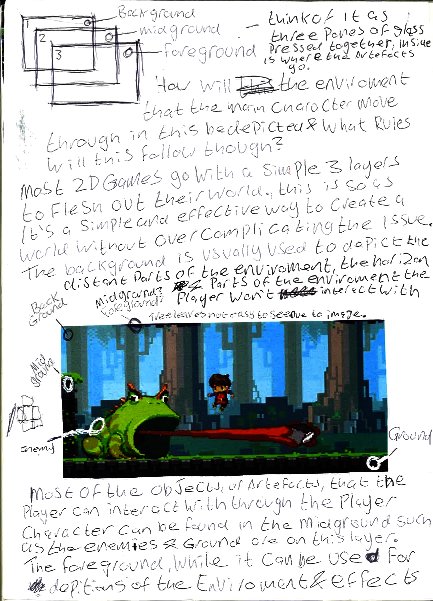 Background
midground
foreground
1
2
3
- think of it as
three Panes of glass
Pressed together, inside
is where the Artefacts
go.
How will the enviroment
that the main Character move
through in this be depicted & what Rules
will this follow though?
Most 2D Games go with a Simple 3 layers
to flesh out their world, this is so as
it's a Simple and effective way to Create a
world without over complicating the issue.
The background is usually used to depict the
distant Parts of the enviroment, the horizon
& Parts of the enviroment the
Player won't interact with
Back
Ground
Midground?
Foreground?
Tree leaves not easy to see due to image.
Mid
Ground
enemy
Ground
Most of the objects, or Artefacts, that the
Player can interact with through the Player
Character can be found in the Midground such
as the enemies & Ground are on this layer.
The foreground, while it can be used for
depitions of the Enviroment & effects